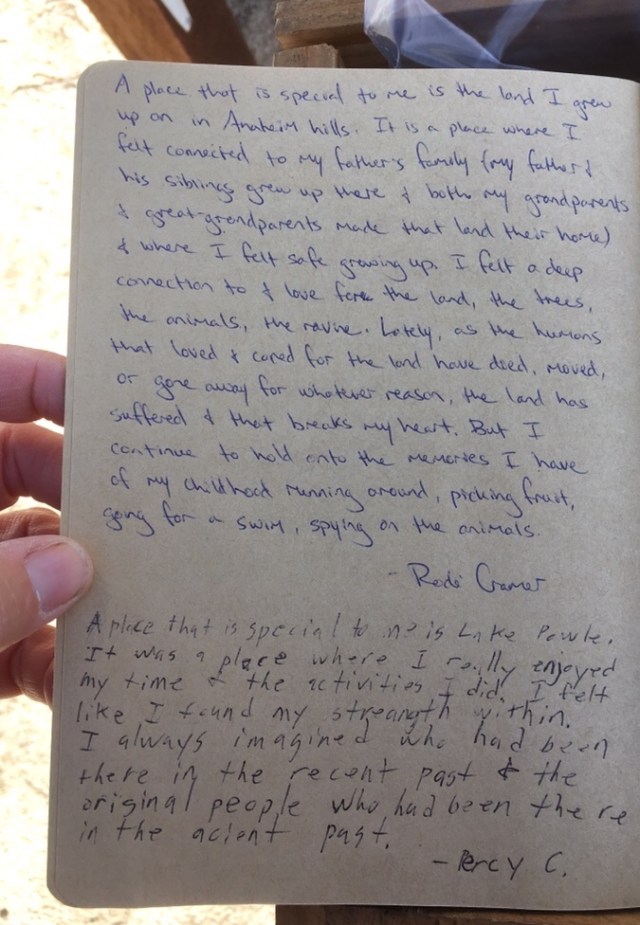 A place that is special to me is the land I grew
up on in Anaheim hills. It is a place where I
felt connected to my father's family (my father &
his siblings grew up there & both my grandparents
& great-grandparents made that land their home)
& where I felt safe growing up. I felt a deep
connection to & love for the land, the trees,
the animals, the ravine. Lately, as the humans
that loved & cared for the land have died, moved,
or gone away for whatever reason, the land has
suffered & that breaks my heart. But I
continue to hold onto the memories I have
of my childhood running around, picking fruit,
going for a swim, spying on the animals.
- Cramer
A place that is special to me is Lake Powle.
It was a place where I really enjoyed
my time & the activities I did. I felt
like I found my streangth within.
I always imagined who had been
there in the recent past & the
original people who had been there
in the acient past.
- Percy C.